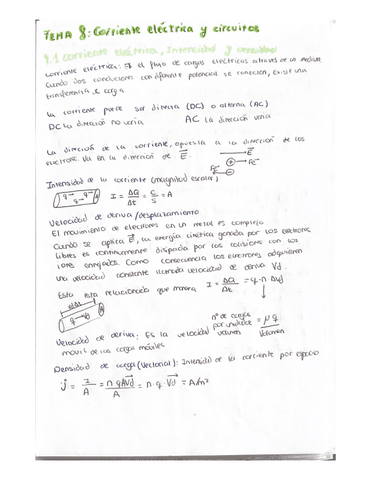 TEMA 8: Corriente eléctrica y circuitos
8.1 corriente eléctrica, Intensidad y densidad
corriente eléctrica: Es el flujo de cargas electricas a traves de un medium
Cuando dos conductores con diferente potencial se conectan, existe una
transferencia de carga
La corriente puede ser directa (DC) o alterna (AC)
DC la dirección no varía AC la dirección varía
La dirección de la corriente, opuesta a la dirección de los
electrones. Va en la dirección de E
E
F
F
Intensidad de la corriente (magnitud escalar)
I = ΔQ/Δt = C/s = A
Velocidad de deriva/desplazamiento
El movimiento de electrones en un metal es complejo
Cuando se aplica E, la energía cinética ganada por los electrones
libres es continuamente disipada por las colisiones con los
iones enrejados. Como consecuencia los electrones adquieren
una velocidad constante llamada velocidad de deriva Vd.
Esta esta relacionada que manera I = ΔQ/Δt = q·n A Vd
Velocidad de deriva: Es la velocidad
movil de las cargas móviles
nº de cargas por unidad volumen
Volumen
Densidad de carga (Vectorial): Intensidad de la corriente por espacio
J = I/A = n q A Vd/A = n·q·Vd = A/m²